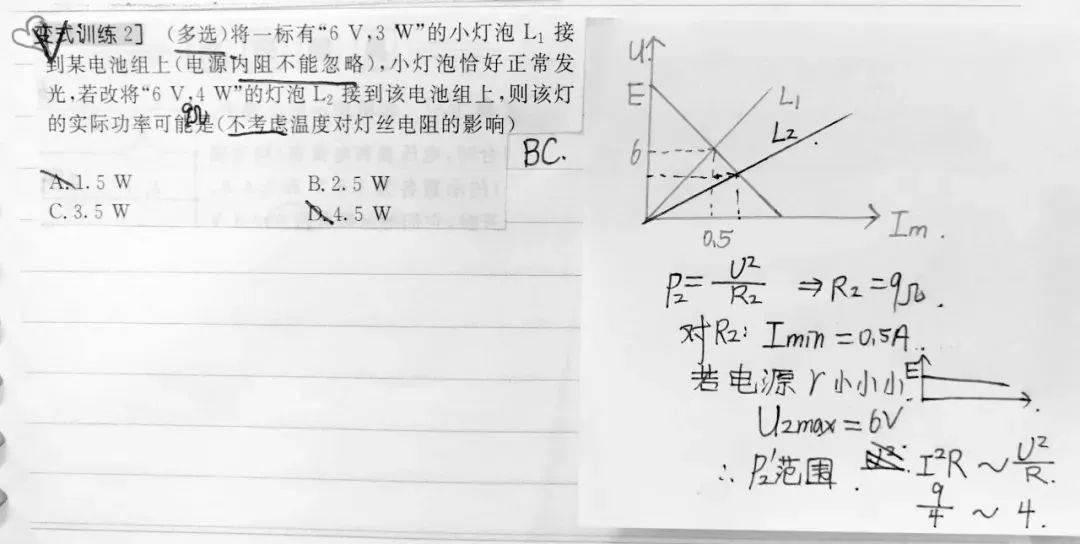 变式训练2] (多选)将一标有“6 V,3 W”的小灯泡 L₁ 接
到某电池组上(电源内阻不能忽略),小灯泡恰好正常发
光,若改将“6 V,4 W”的灯泡 L₂ 接到该电池组上,则该灯
9Ω
的实际功率可能是(不考虑温度对灯丝电阻的影响)
BC.
A. 1.5 W B. 2.5 W
C. 3.5 W D. 4.5 W
U
E
L₁
L₂
6
0.5
Im.
P₂=U²/R₂ ⇒R₂=9Ω.
对R₂: Imin=0.5A.
若电源r小小小 E
U₂max=6V
∴P₂'范围. I²R~U²/R.
9/4 ~ 4.